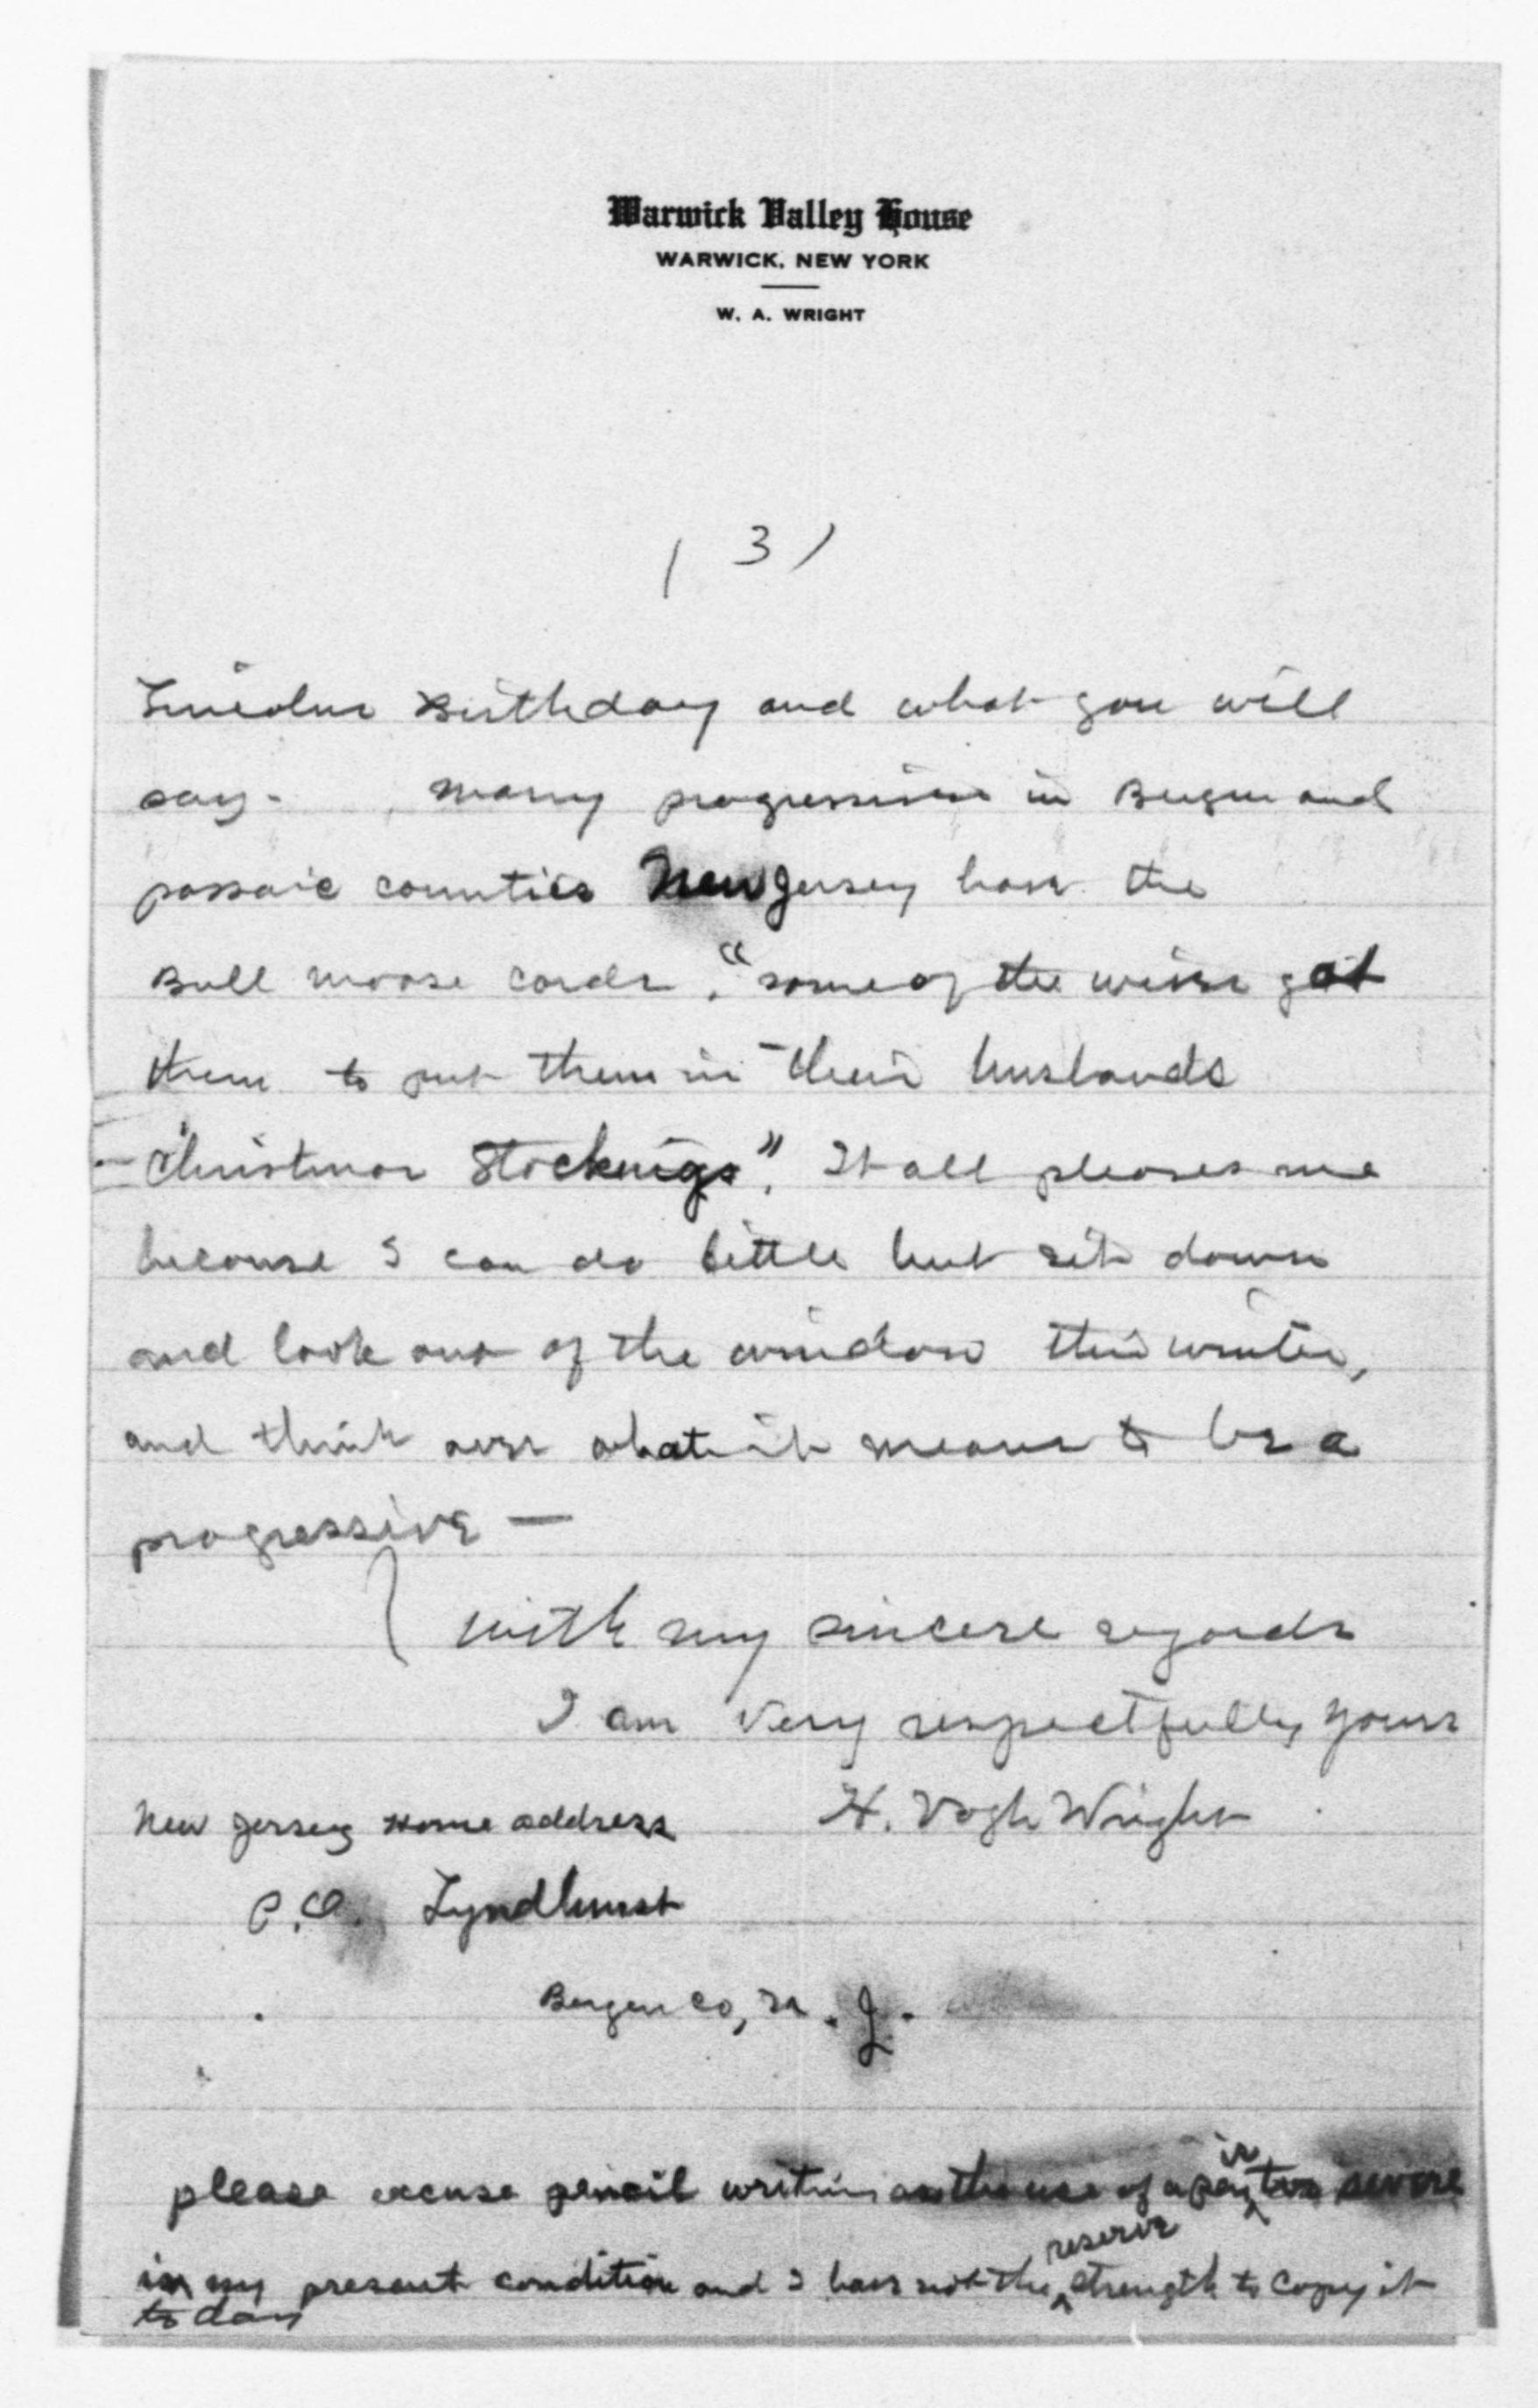 Warwick Valley House
WARWICK, NEW YORK
W. A. WRIGHT
( 3 )
Lincolns Birthday and what you will
say - many progressives in Bergen and
passaic counties New Jersey have the
Bull moose cards, "some of the wives got
them to put them in their husbands
Christmas Stockings". It all pleases me
because I can do little but sit down
and look out of the window this winter,
and think over what it means to be a
progressive —
with my sincere regards
I am very respectfully yours
H. Vogh Wright
New Jersey Home address
P.O. Lyndhurst
Bergen Co, N. J.
please excuse pencil writing as the use of a pen is too severe
in my present condition and I have not the reserve strength to copy it
to day